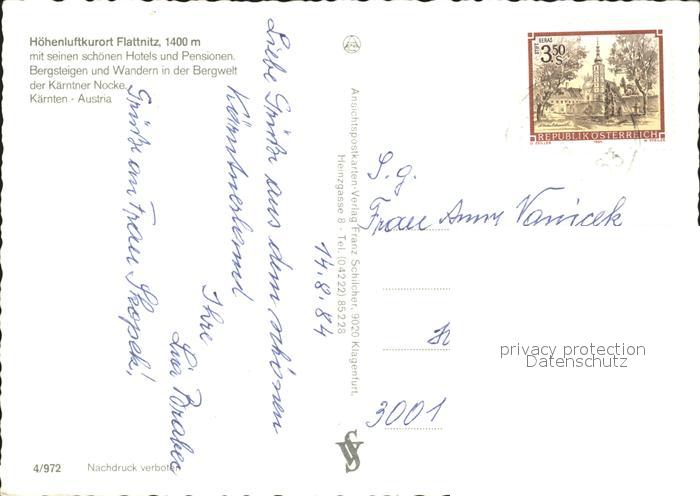 Höhenluftkurort Flattnitz, 1400 m
mit seinen schönen Hotels und Pensionen.
Bergsteigen und Wandern in der Bergwelt
der Kärntner Nocke.
Kärnten - Austria
14.8.84
Liebe Grüße aus dem schönen
Kärntnerland
Ihre
Lia Brabec
Grüße an Frau Skopek!
4/972
Nachdruck verboten
Ansichtspostkarten-Verlag Franz Schilcher, 9020 Klagenfurt,
Heinzgasse 8 - Tel. (04222) 85228
STIFT GERAS
3.50 S
REPUBLIK ÖSTERREICH
O. ZEILLER 1984 W. PFEILER
S. g.
Frau Anny Vanicek
3001
privacy protection
Datenschutz